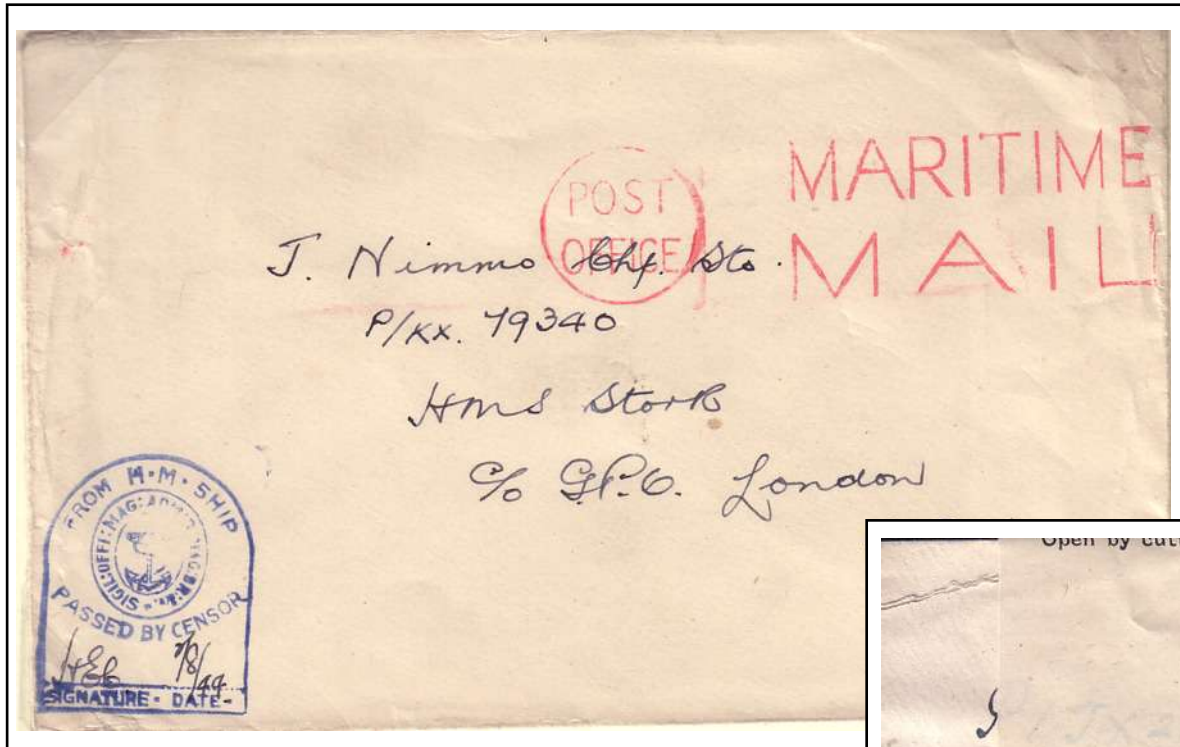 POST
OFFICE
MARITIME
MAIL
J. Nimmo Chf. Sto.
P/KX. 79340
HMS Stork
c/o G.P.O. London
FROM H·M·SHIP
SIGIL:OFFI:MAG:
PASSED BY CENSOR
SIGNATURE - DATE-
Open by cut